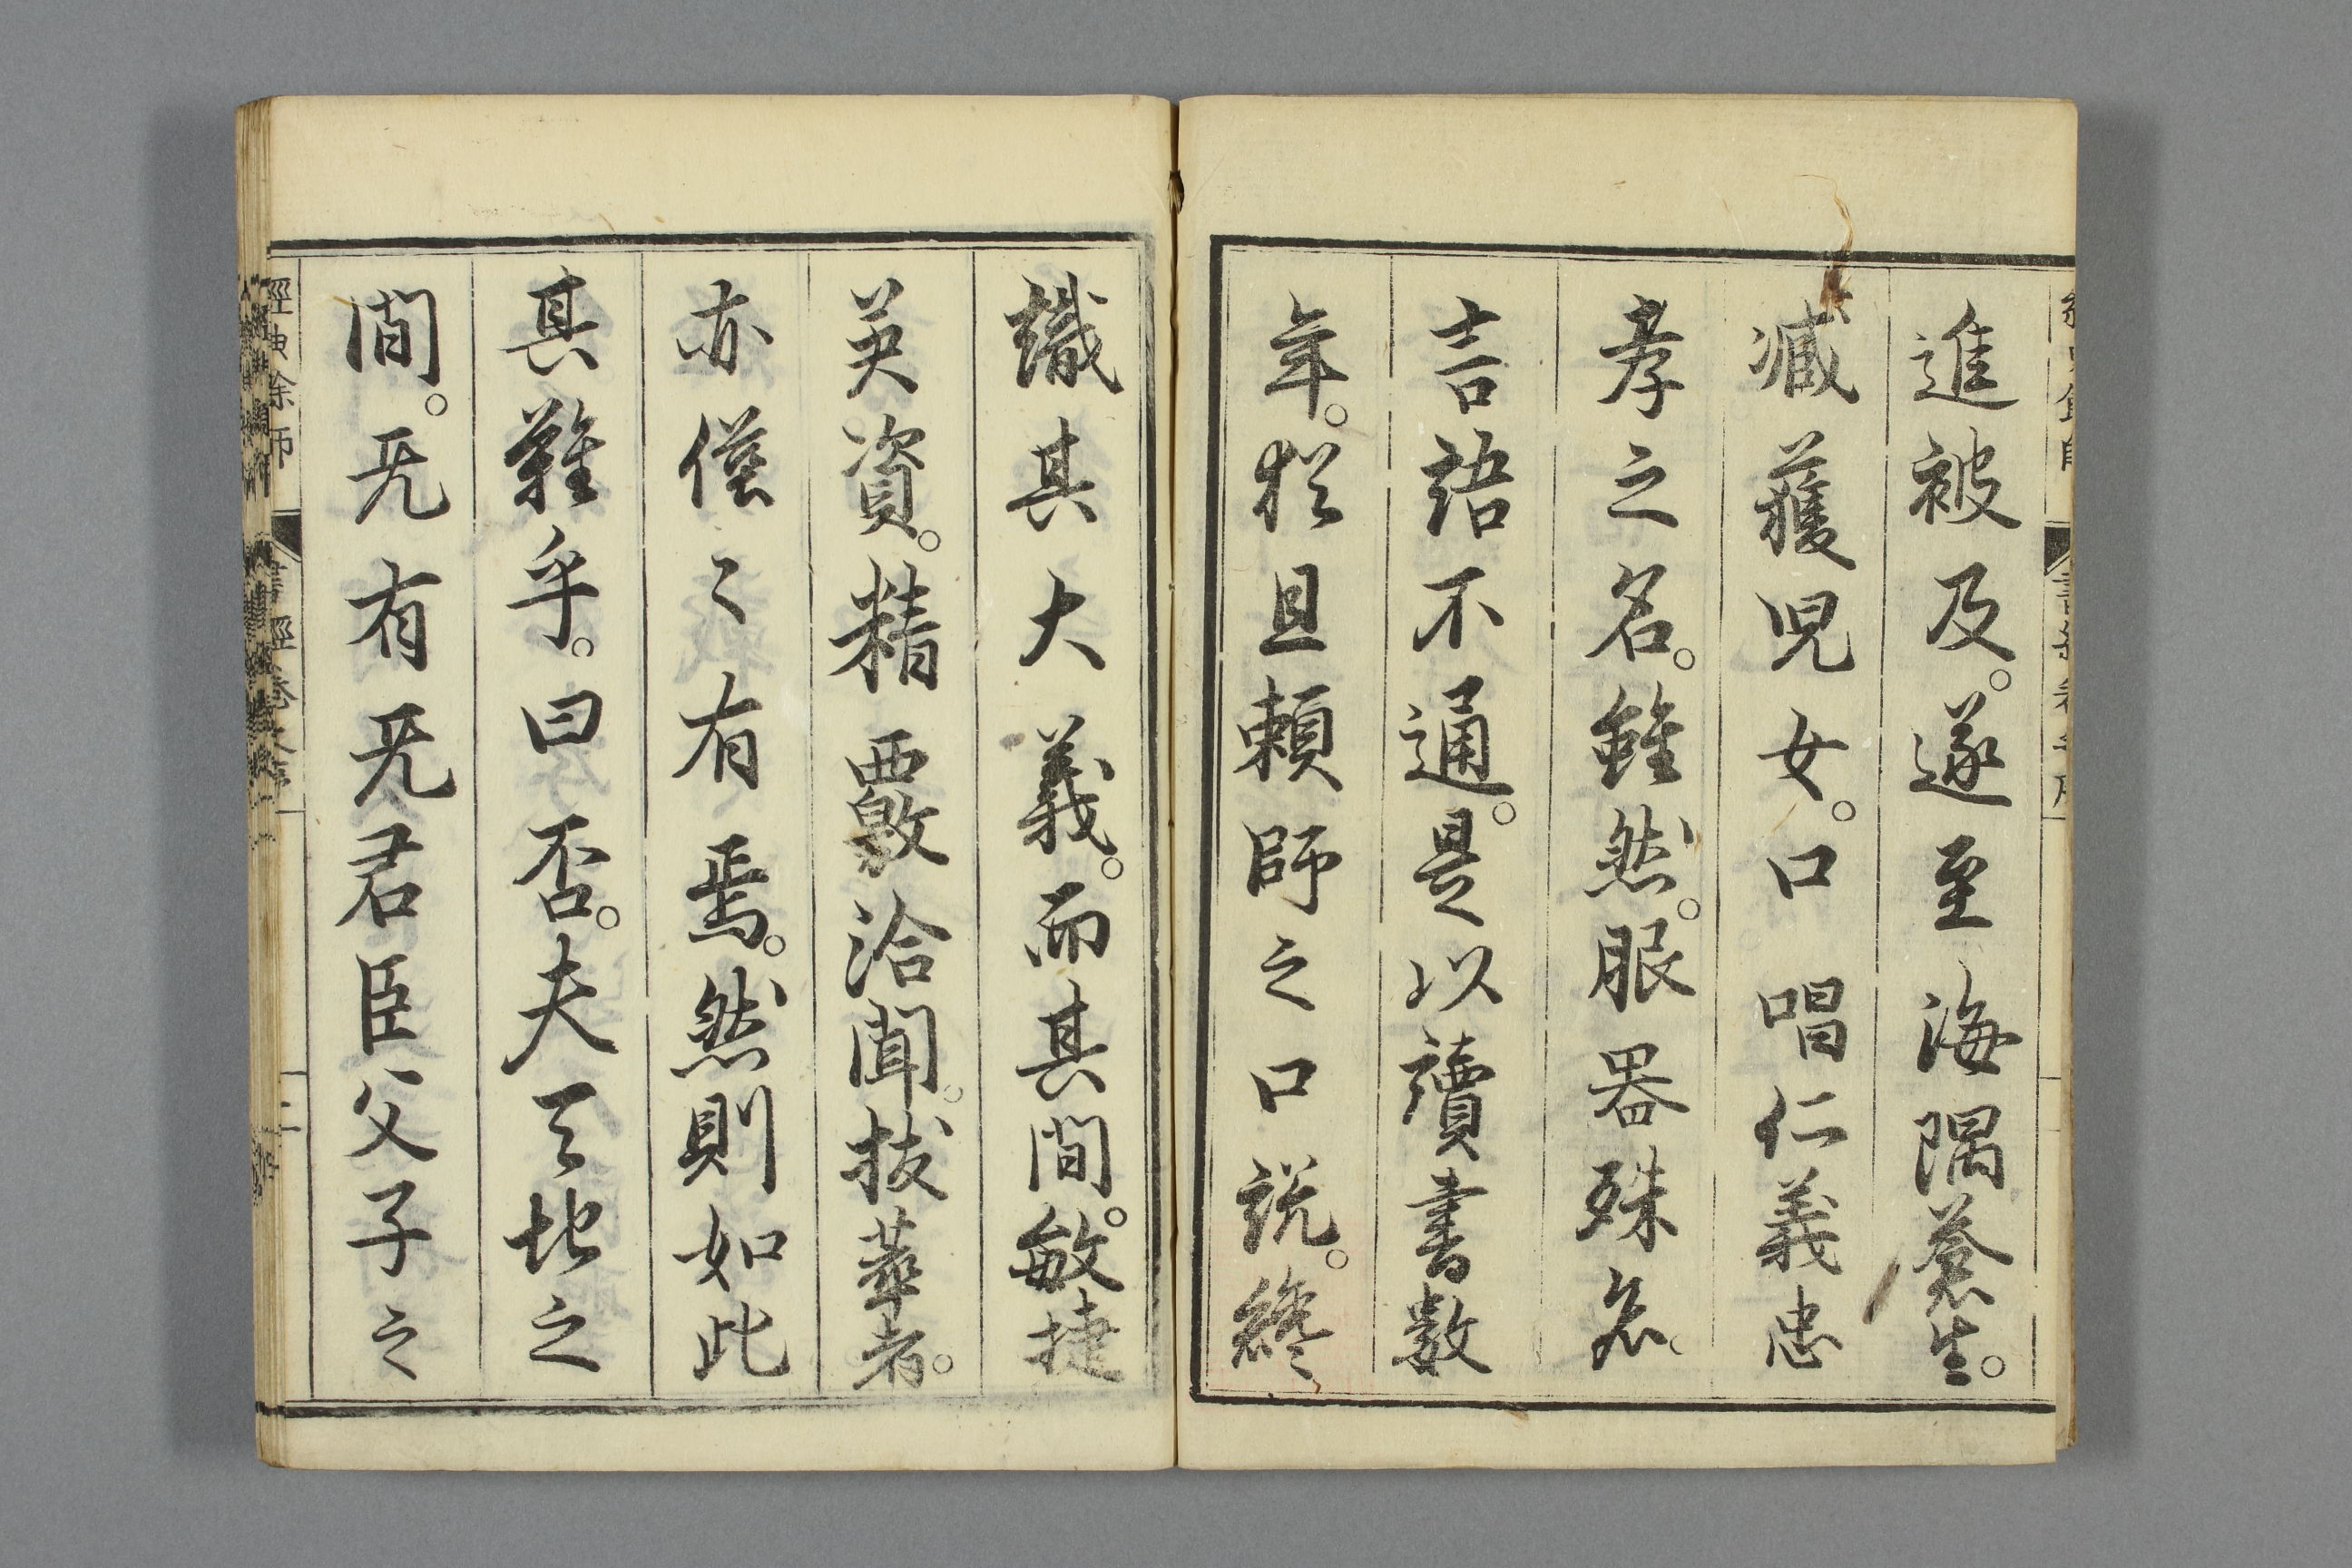 進被及。遂至海隅蒼生。
臧獲児女。口唱仁義忠
孝之名。雖然。服器殊
言語不通。是以讀書數
年。猶且賴師之口說。纔
識其大義。而其間。敏捷
英資。精覈洽聞。拔萃者。
亦僅々有焉。然則如此
其難乎。曰否。夫天地之
間。旡有旡君臣父子之
經典余師
二